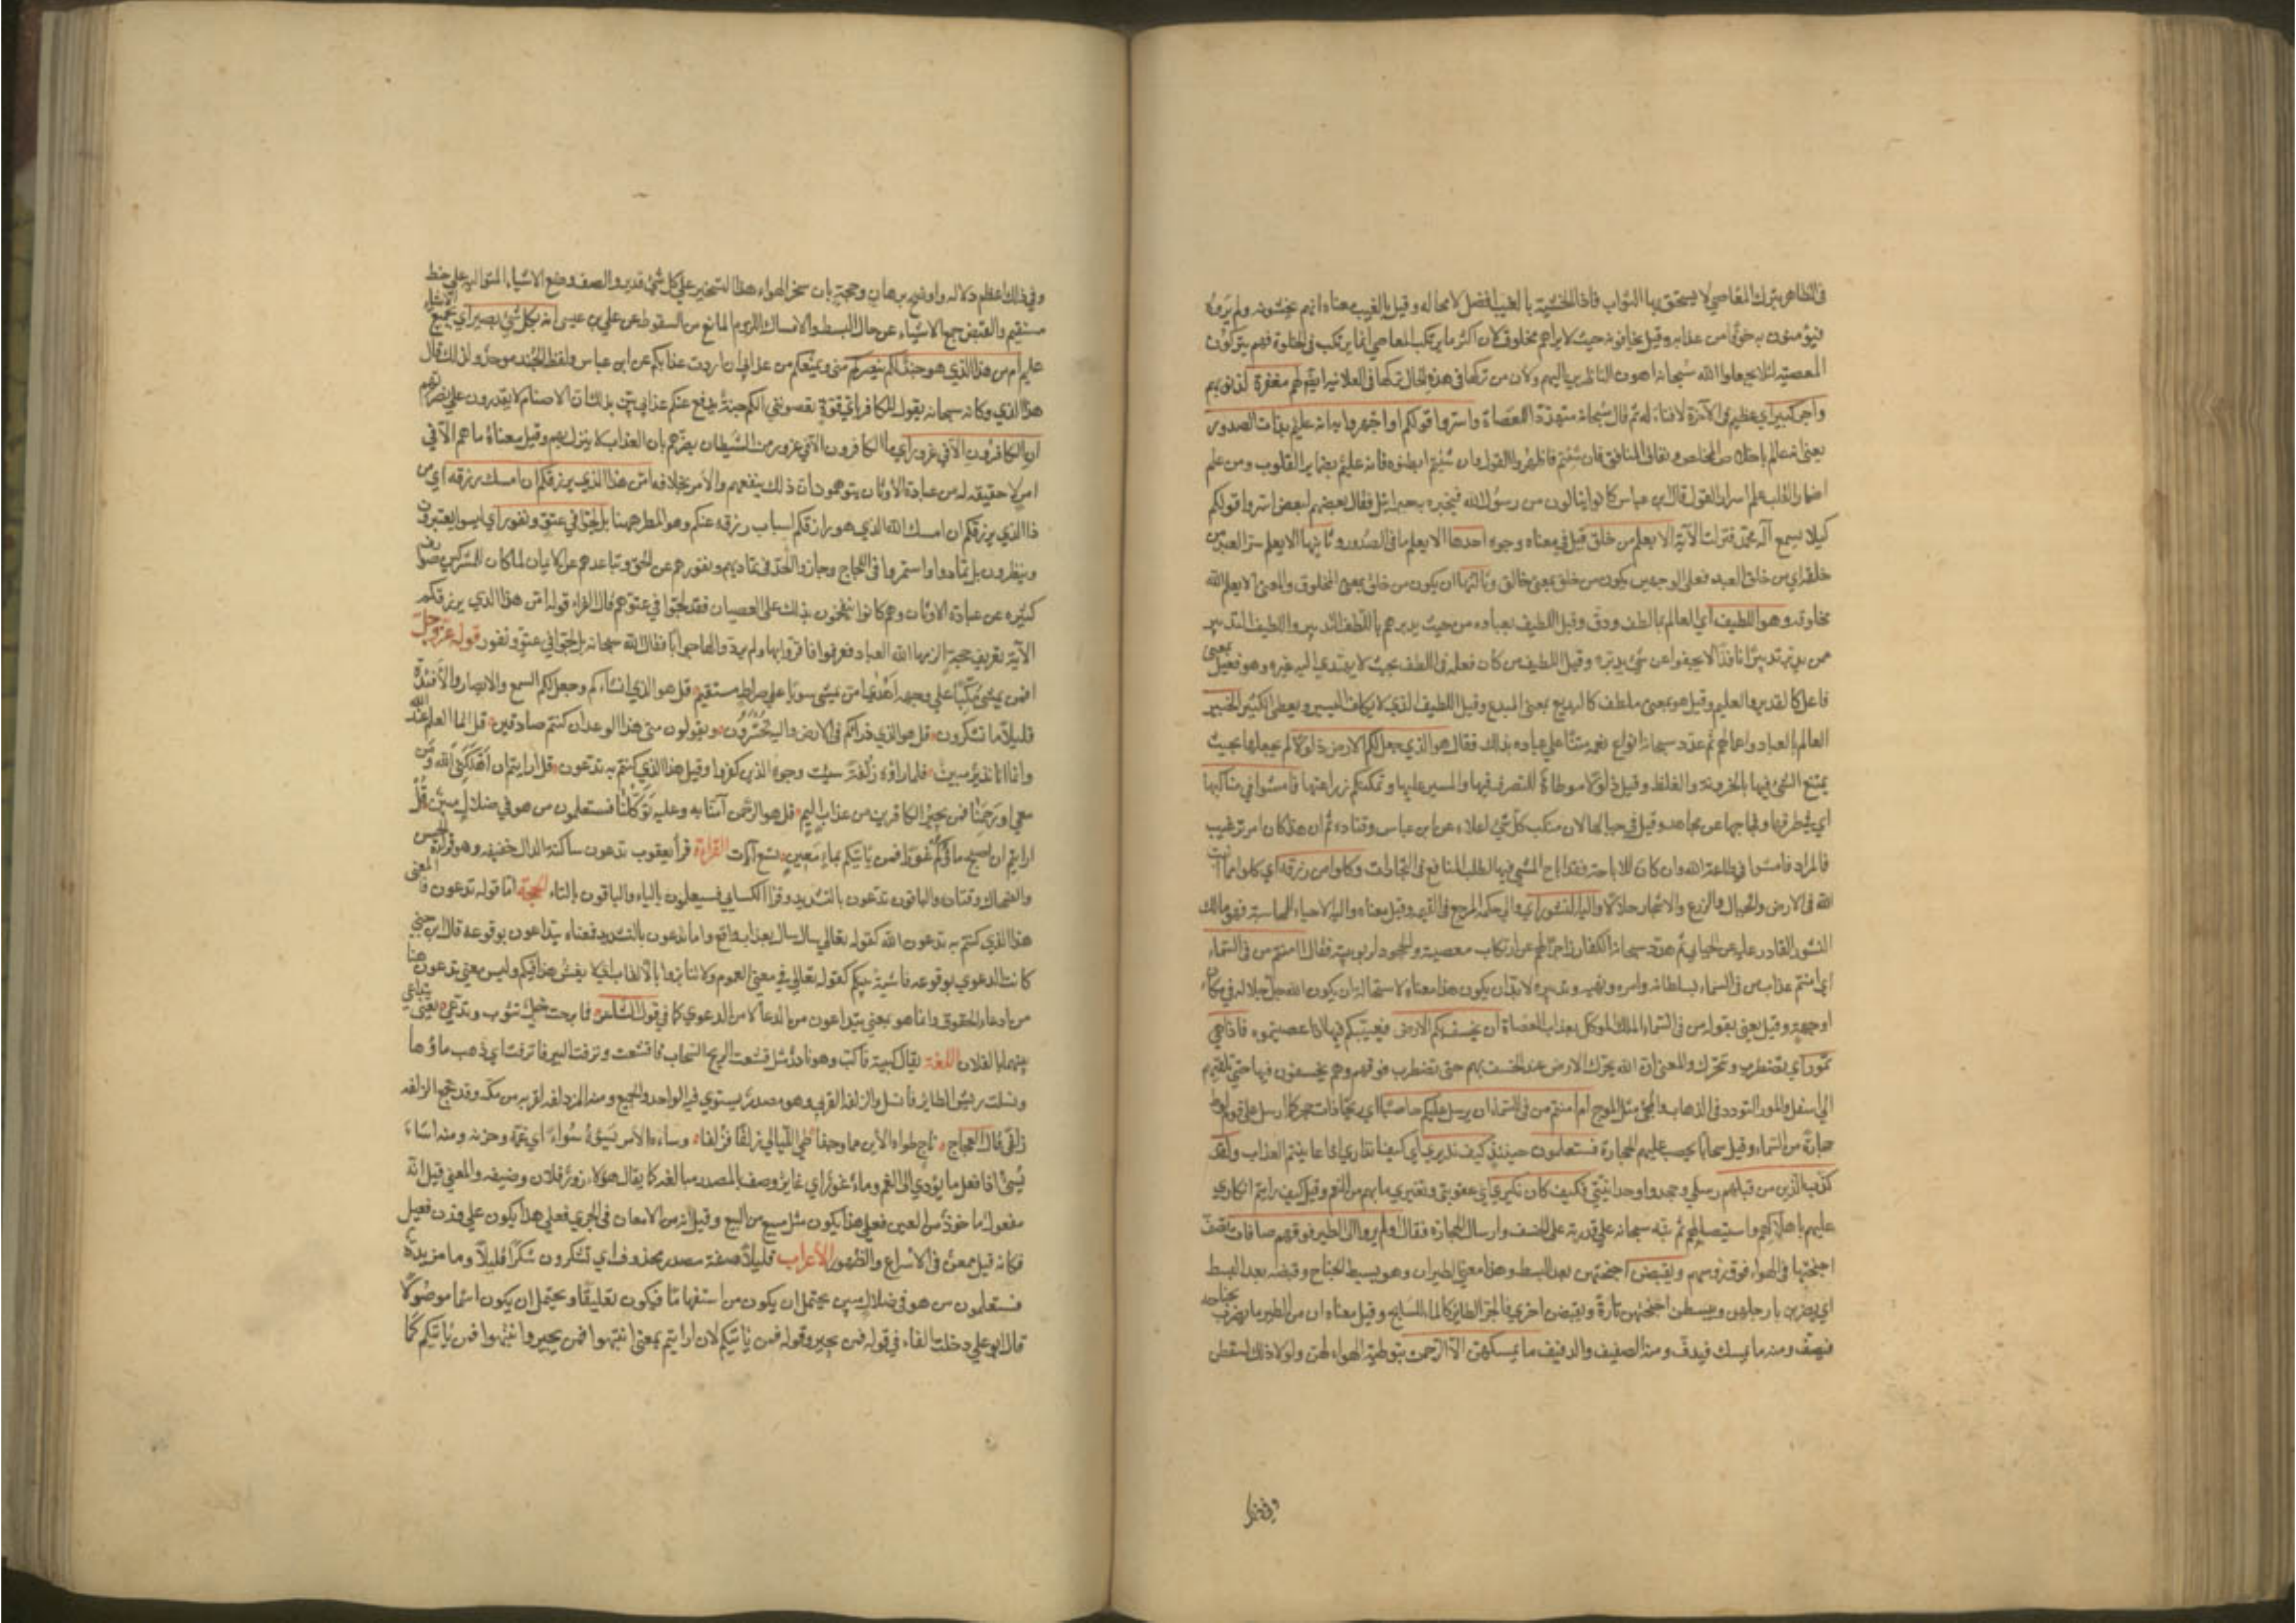 في الظاهر بترك المعاصي لا يستحق بها الثواب فاذا الخشية بالغيب افضل لا محاله وقيل بالغيب معناه انهم يخشونه ولم يروه
فيؤمنون به خوفا من عذابه وقيل يخافونه حيث لا يراهم مخلوق لان اكثر ما يرتكب المعاصي انما يرتكب في الخلوة فهم يتركون
المعصية لئلا يجعلوا الله سبحانه اهون الناظرين اليهم ولان من تركها في هذه الحال تركها في العلانية ايضا لهم مغفرة لذنوبهم
واجر كبير اي عظيم في الآخرة لا فناء له ثم قال سبحانه متهددا للعصاة واسروا قولكم او اجهروا به انه عليم بذات الصدور
يعني انه عالم باخلاص المخلص ونفاق المنافق فان شئتم فاظهروا القول وان شئتم ابطنوه فانه عليم بضماير القلوب ومن علم
اضمار القلب علم اسرار القول قال ابن عباس كانوا ينالون من رسول الله فيخبره به جبرائيل فقال بعضهم لبعض اسروا قولكم
كيلا يسمع آله محمد فنزلت الآية الا يعلم من خلق قيل في معناه وجوه احدها الا يعلم ما في الصدور وثانيها الا يعلم سر العبد من
خلقه اي من خلق العبد فعلى الوجهين يكون من خلق بمعنى خالق وثالثها ان يكون من خلق بمعنى المخلوق والمعنى الا يعلم الله
مخلوقه وهو اللطيف اي العالم بما لطف ودق وقيل اللطيف بعباده من حيث يدبرهم بالطف التدبير واللطيف التدبير
من يدبر تدبيرا نافذا لا يجفوا عن شيء يدبره وقيل اللطيف من كان فعله في اللطف بحيث لا يهتدي اليه غيره وهو فعيل بمعنى
فاعل كالقدير والعليم وقيل هو بمعنى ملطف كالبديع بمعنى المبدع وقيل اللطيف الذي يكلف اليسير ويعطي الكثير الخبير
العالم بالعباد واعمالهم ثم عدد سبحانه انواع نعمه ممتنا على عباده بذلك فقال هو الذي جعل لكم الارض ذلولا لم يجعلها بحيث
يمتنع المشي فيها بالحزونة والغلظ وقيل ذلولا موطاة للتصرف فيها والمسير عليها ويمكنكم زراعتها فامشوا في مناكبها
اي في طرقها وفجاجها عن مجاهد وقيل في جبالها لان منكب كل شيء اعلاه عن ابن عباس وقتادة ثم ان هذا كان امر ترغيب
فالمراد فامشوا في طاعة الله وان كان للاباحة فقد اباح المشي فيها لطلب المنافع في التجارات وكلوا من رزقه اي كلوا مما انبت
الله في الارض والجبال والزرع والاشجار حلالا واليه النشور اي والى حكمه المرجع في القيمه وقيل معناه واليه الاحياء للمحاسبة فهو مالك
النشور القادر عليه عن الجبائي ثم هدد سبحانه الكفار زاجرا لهم عن ارتكاب معصيته والجحود لربوبيته فقال اامنتم من في السماء
اي امنتم عذاب من في السماء سلطانه وامره ونهيه وتدبيره لا بد ان يكون هذا معناه لاستحالة ان يكون الله جل جلاله في مكان
او جهة وقيل يعني بقوله من في السماء الملك الموكل بعذاب العصاة ان يخسف بكم الارض فيغيبكم فيها اذا عصيتموه فاذا هي
تمور اي تضطرب وتتحرك والمعنى ان الله يحرك الارض عند الخسف بهم حتى تضطرب فوقهم وهم يخسفون فيها حتى تلقيهم
الى اسفل والمور التردد في الذهاب والمجئ مثل الموج ام امنتم من في السماء ان يرسل عليكم حاصبا اي ريحا ذات حجر كما ارسل على قوم لوط
حجارة من السماء وقيل سحابا يحصب عليهم الحجارة فستعلمون حينئذ كيف نذير اي كيف انذاري اذا عاينتم العذاب ولقد
كذب الذين من قبلهم رسلي وجحدوا وحدانيتي فكيف كان نكير اي عقوبتي وتغييري ما بهم من النعم وقيل كيف رايتم انكاري
عليهم باهلاكهم واستيصالهم ثم نبه سبحانه على قدرته على الخسف وارسال الحجارة فقال اولم يروا الى الطير فوقهم صافات تصف
اجنحتها في الهواء فوق رؤسهم ويقبضن اجنحتهن بعد البسط وهذا معنى الطيران وهو بسط الجناح وقبضه بعد البسط
اي يضربن بارجلهن ويبسطن اجنحتهن تارة ويقبضن اخرى فالجو للطاير كالماء للسابح وقيل معناه ان من الطير ما يضرب بجناحه
فيصف ومنه ما يمسك فيدف ومنه الصفيف والدفيف ما يمسكهن الا الرحمن بتوطئة الهواء لهن ولولا ذلك لسقطن
وفي ذلك
وفي ذلك اعظم دلاله واوضح برهان وحجة بان من سخر الهواء هذا التسخير على كل شيء قدير والصف وضع الاشياء المتواليه على خط
مستقيم والقبض جمع الاشياء عن حال البسط والامساك اللزوم المانع من السقوط عن علي بن عيسى انه بكل شيء بصير اي بجميع الاشياء
عليم ام من هذا الذي هو جند لكم ينصركم مني ويمنعكم من عذابي ان اردت عذابكم عن ابن عباس ولفظ الجند موحد ولذلك قال
هذا الذي وكانه سبحانه يقول للكافر باي قوة تعصونني الكم جند يدفع عنكم عذابي بين بذلك ان الاصنام لا يقدرون على نصرتهم
ان الكافرون الا في غرور اي ما الكافرون الا في غرور من الشيطان يغرهم بان العذاب لا ينزل بهم وقيل معناه ما هم الا في
امر لا حقيقة له من عبادة الاوثان يتوهمون ان ذلك ينفعهم والامر بخلافه امن هذا الذي يرزقكم ان امسك رزقه اي من
ذا الذي يرزقكم ان امسك الله الذي هو رازقكم اسباب رزقه عنكم وهو المطر ههنا بل لجوا في عتو ونفور اي ليسوا يعتبرون
وينظرون بل تمادوا واستمروا في اللجاج وجاوزوا الحد في تماديهم ونفورهم عن الحق وتباعدهم عن الايمان لما كان للمشركين صوارف
كثيره عن عبادة الاوثان وهم كانوا يلحون بذلك على العصيان فقد لجوا في عتوهم قال الفراء قوله امن هذا الذي يرزقكم
الآية تعريف حجة الزمها الله العباد فعرفوا فاقروا بها ولم يردوا لها جوابا فقال الله سبحانه بل لجوا في عتو ونفور قوله عز وجل
افمن يمشي مكبا على وجهه اهدى امن يمشي سويا على صراط مستقيم قل هو الذي انشاكم وجعل لكم السمع والابصار والافئدة
قليلا ما تشكرون قل هو الذي ذراكم في الارض واليه تحشرون ويقولون متى هذا الوعد ان كنتم صادقين قل انما العلم عند الله
وانما انا نذير مبين فلما راوه زلفة سيئت وجوه الذين كفروا وقيل هذا الذي كنتم به تدعون قل ارايتم ان اهلكني الله ومن
معي او رحمنا فمن يجير الكافرين من عذاب اليم قل هو الرحمن آمنا به وعليه توكلنا فستعلمون من هو في ضلال مبين قل
ارايتم ان اصبح ماؤكم غورا فمن ياتيكم بماء معين تسع آيات القراءة قرأ يعقوب تدعون ساكنة الدال خفيفه وهو قراءة الحسن
والضحاك وقتادة والباقون تدعون بالتشديد وقرا الكسائي فسيعلمون بالياء والباقون بالتاء الحجة اما قوله تدعون فالمعنى
هذا الذي كنتم به تدعون الله كقوله تعالى سال سائل بعذاب واقع واما تدعون بالتشديد فمعناه تتداعون بوقوعه قال ابن جني
كانت الدعوى بوقوعه فاشية بينكم كقوله تعالى في معنى العموم ولا تنابزوا بالالقاب اي لا يفش هذا فيكم وليس معنى تدعون هنا
من ادعاء الحقوق وانما هو بمعنى تتداعون من الدعاء لا من الدعوى كما في قول الشاعر فما برحت خيل تثوب وتدعي يعني تتداعى
بينها يا لفلان اللغة يقال كببته فاكب وهو نادر مثل قشعت الريح السحاب فاقشعت ونزفت البير فانزفت اي ذهب ماؤها
ونسلت ريش الطاير فانسل والزلفة القربى وهو مصدر يستوي فيه الواحد والجمع ومنه المزدلفه لقربها من مكه وقد تجمع الزلفه
زلفى قال العجاج ناج طواه الاين مما وجفا طي الليالي زلفا فزلفا وساءه الامر يسوؤه سواء اي غمه وحزنه ومنه اساء
يسئ اذا فعل ما يؤدي الى الغم وماء غور اي غاير وصف بالمصدر مبالغه كما يقال هؤلاء زور فلان وضيفه والمعين قيل انه
مفعول ماخوذ من العين فعلى هذا يكون مثل مبيع من البيع وقيل انه من الامعان في الجري فعلى هذا يكون على وزن فعيل
فكانه قيل ممعن في الاسراع والظهور الاعراب قليلا صفة مصدر محذوف اي تشكرون شكرا قليلا وما مزيدة
فستعلمون من هو في ضلال مبين يحتمل ان يكون من استفهاما فيكون تعليقا ويحتمل ان يكون اسما موصولا
قال ابو علي دخلت الفاء في قوله فمن يجير وقوله فمن ياتيكم لان ارايتم بمعنى انتبهوا فمن يجير وانتبهوا فمن ياتيكم كما